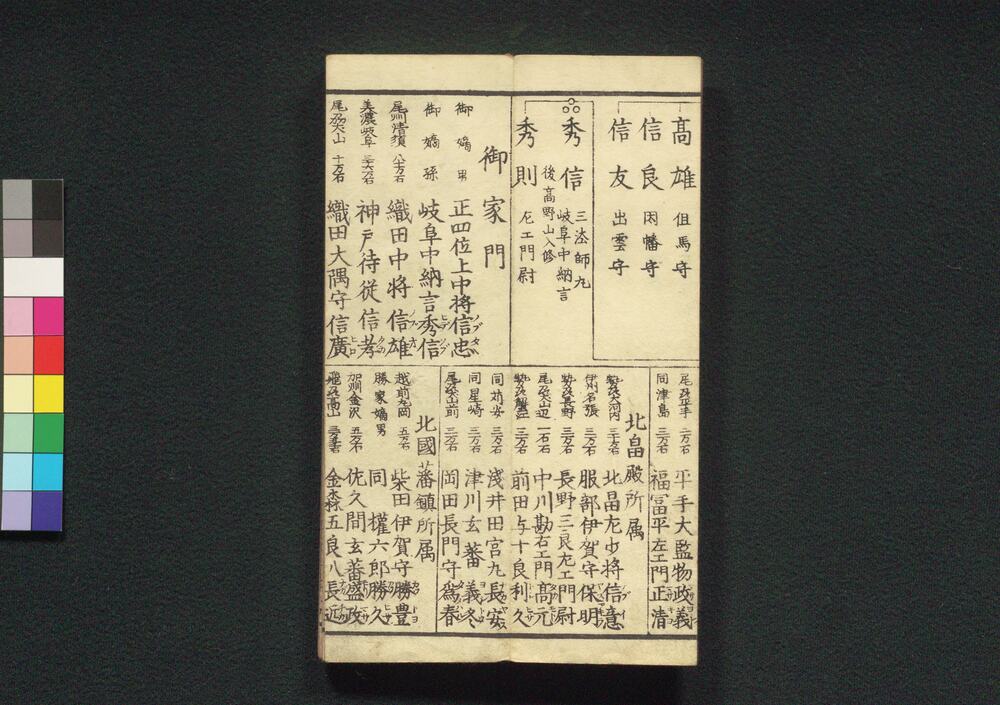 高雄 但馬守
信良 因幡守
信友 出雲守
秀信 三法師丸
岐阜中納言
後高野山入修
秀則 左エ門尉
御家門
御嫡男 正四位上中将信忠 ノブタヾ
御嫡孫 岐阜中納言秀信 ヒデノブ
尾州清須 八十万石 織田中将信雄 ノブオ
美濃岐阜 神戸侍従信孝
尾州犬山 十万石 織田大隅守信廣 ヒロ
尾州平手 二万石 平手大監物政義
同津島 三万石 福冨平左エ門正清
北畠殿所属
勢州大河内 北畠左少将信意
伊州名張 三万石 服部伊賀守保明
勢州長野 三万石 長野三良左エ門尉
尾州犬山辺 一石石 中川勘右エ門高元
勢州蟹江 三万石 前田与十良利久
同苅安 三万石 浅井田宮丸長安
同星崎 三万石 津川玄蕃義冬
尾州犬山前 三万石 岡田長門守為春
北國藩鎮所属
越前丸岡 五万石 柴田伊賀守勝豊
勝家嫡男 同 権六郎勝久
加州金沢 五万石 佐久間玄蕃盛政
飛州高山 三万石 金森五良八長近